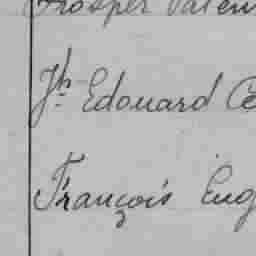 Prosper Valen
Jh Edouard Ce
François Eug